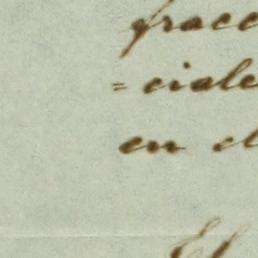 fracc
=ciale
en el
El